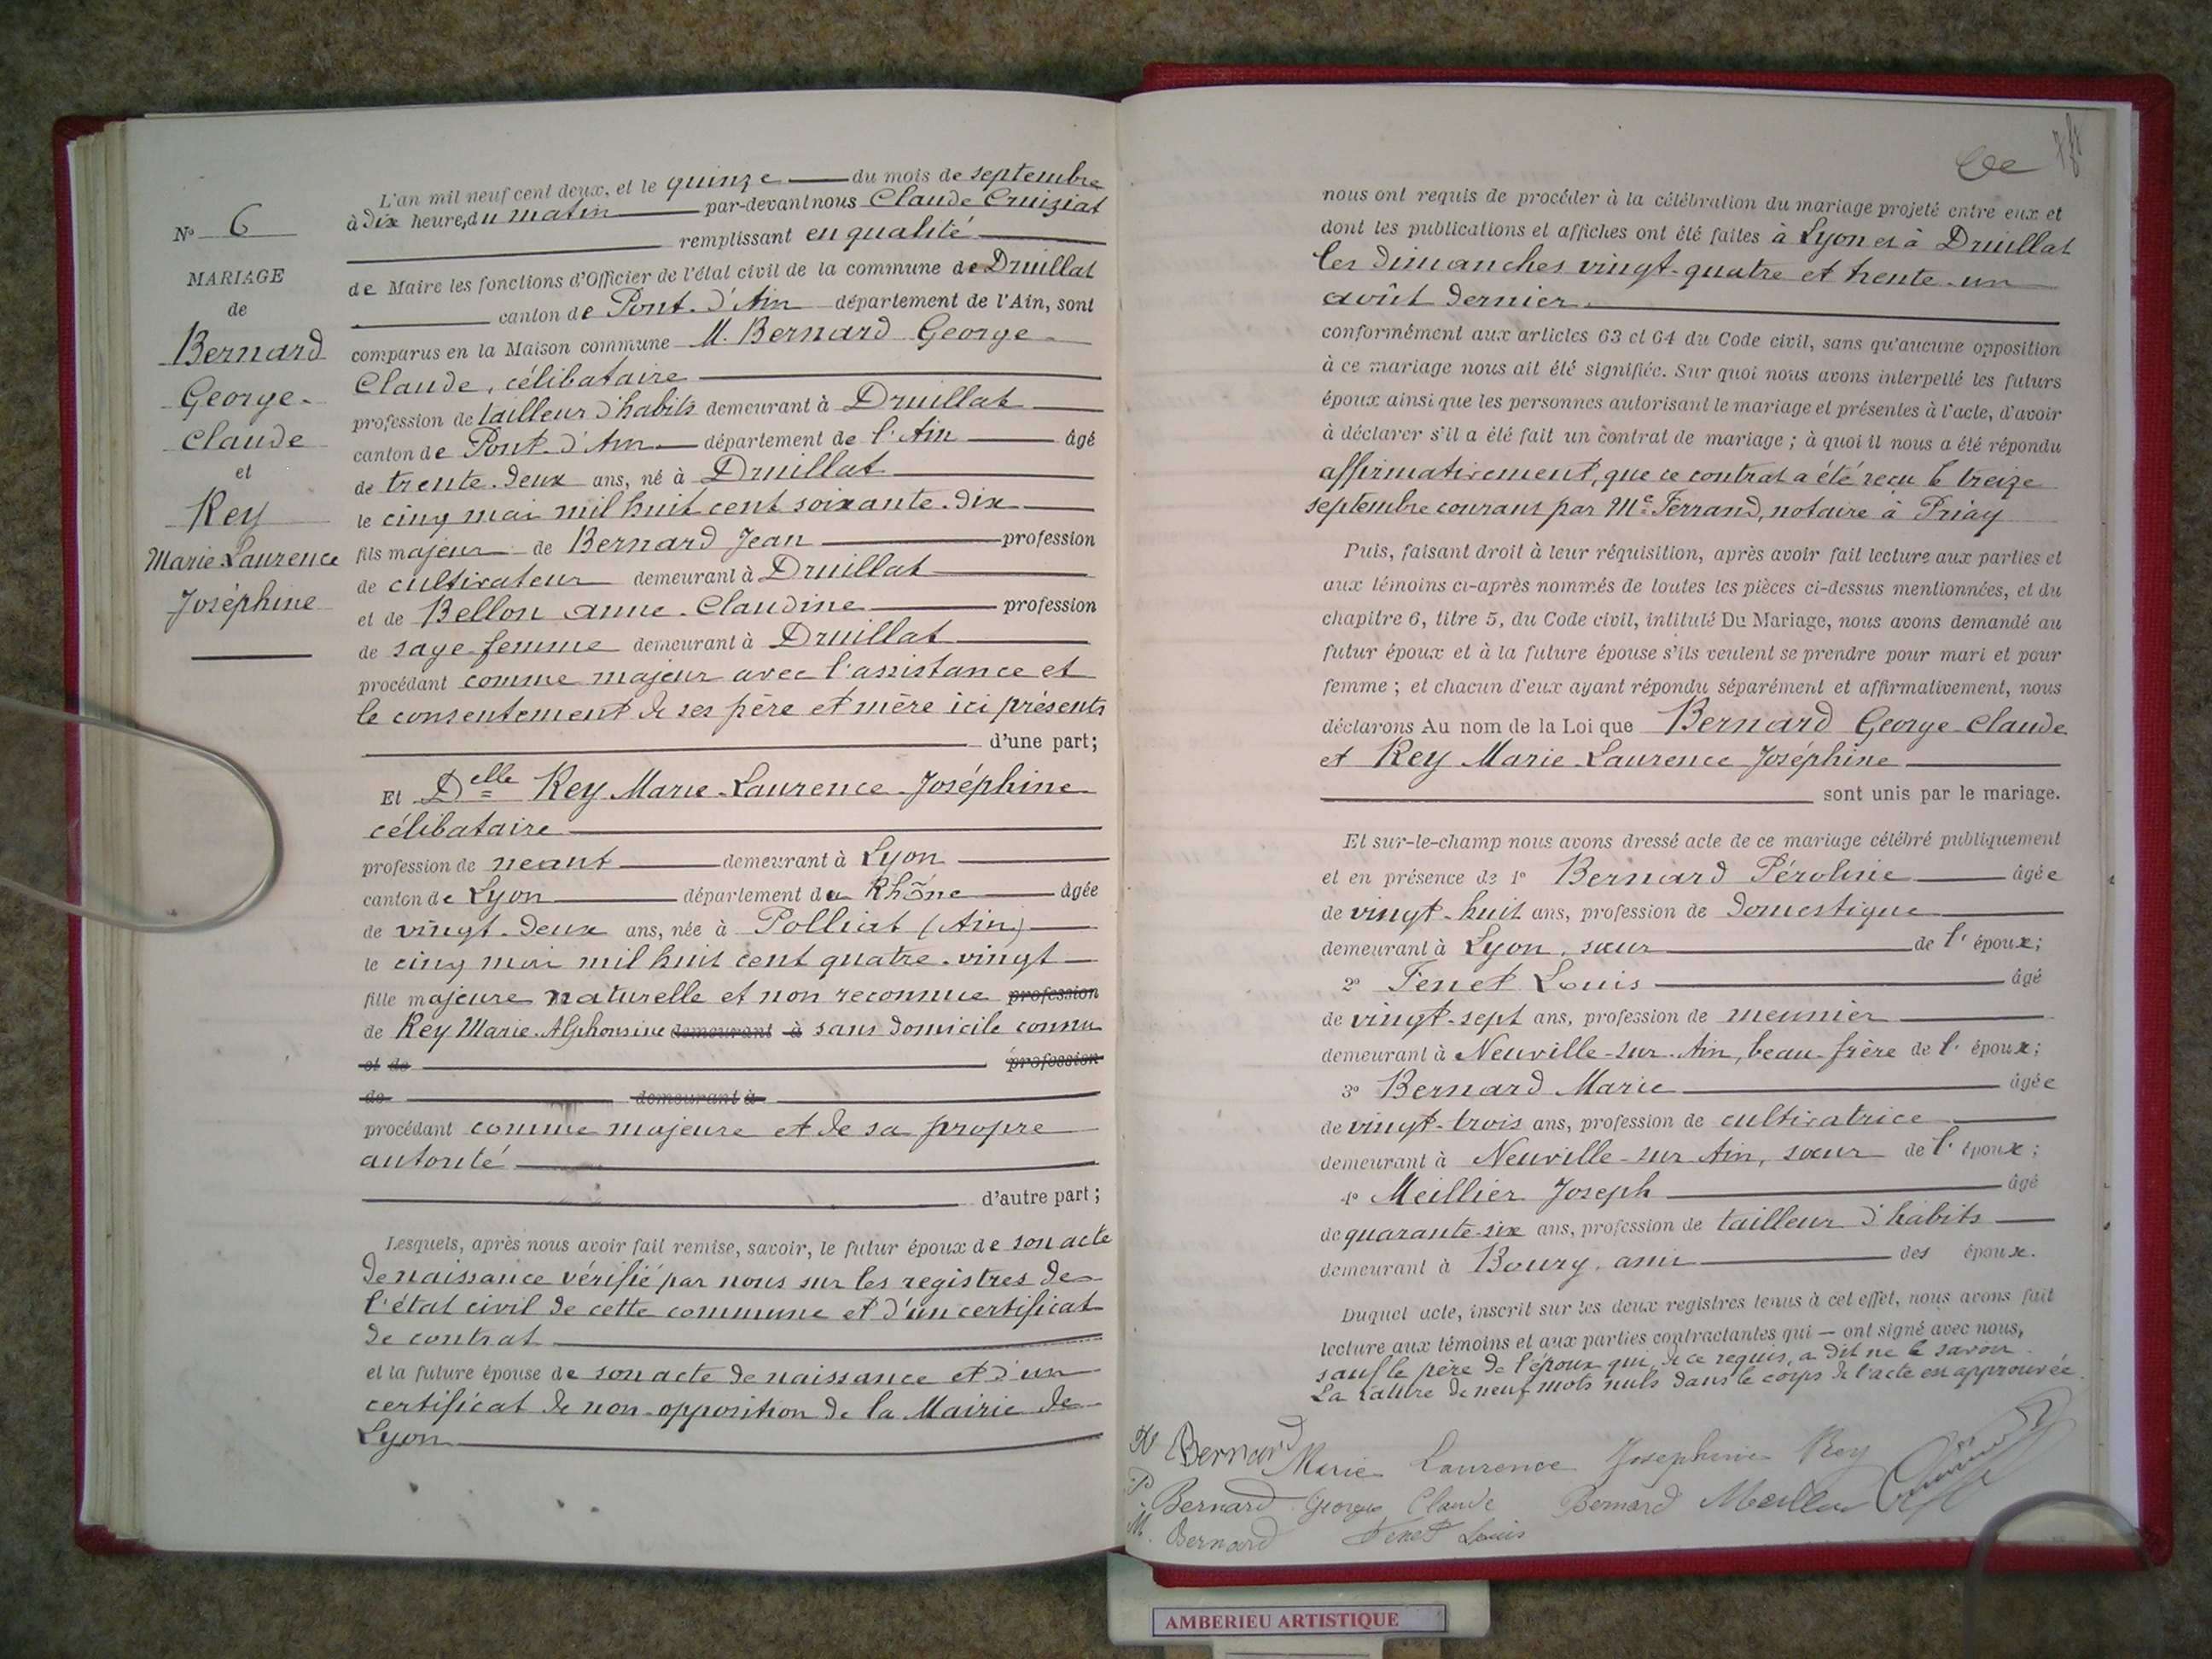 N° 6
MARIAGE
de
Bernard
George-
Claude
et
Rey
Marie-Laurence
Joséphine
L'an mil neuf cent deux, et le quinze du mois de septembre
à dix heures du matin par-devant nous Claude Cruiziat
remplissant en qualité
de Maire les fonctions d'Officier de l'état civil de la commune de Druillat
canton de Pont-d'Ain département de l'Ain, sont
comparus en la Maison commune M. Bernard George-
Claude, célibataire
profession de tailleur d'habits demeurant à Druillat
canton de Pont-d'Ain département de l'Ain âgé
de trente-deux ans, né à Druillat
le cinq mai mil huit cent soixante-dix
fils majeur de Bernard Jean profession
de cultivateur demeurant à Druillat
et de Bellon Anne-Claudine profession
de sage-femme demeurant à Druillat
procédant comme majeur avec l'assistance et
le consentement de ses père et mère ici présents
d'une part;
Et Delle Rey Marie-Laurence-Joséphine
célibataire
profession de néant demeurant à Lyon
canton de Lyon département du Rhône âgée
de vingt-deux ans, née à Polliat (Ain)
le cinq mai mil huit cent quatre-vingt
fille majeure naturelle et non reconnue profession
de Rey Marie-Alphonsine demeurant à sans domicile connu
et de profession
de demeurant à
procédant comme majeure et de sa propre
autorité
d'autre part;
Lesquels, après nous avoir fait remise, savoir, le futur époux de son acte
de naissance vérifié par nous sur les registres de
l'état civil de cette commune et d'un certificat
de contrat
et la future épouse de son acte de naissance et d'un
certificat de non-opposition de la Mairie de
Lyon
nous ont requis de procéder à la célébration du mariage projeté entre eux et
dont les publications et affiches ont été faites à Lyon et à Druillat
les dimanches vingt-quatre et trente-un
août dernier
conformément aux articles 63 et 64 du Code civil, sans qu'aucune opposition
à ce mariage nous ait été signifiée. Sur quoi nous avons interpellé les futurs
époux ainsi que les personnes autorisant le mariage et présentes à l'acte, d'avoir
à déclarer s'il a été fait un contrat de mariage; à quoi il nous a été répondu
affirmativement, que ce contrat a été reçu le treize
septembre courant par Me Ferrand, notaire à Priay
Puis, faisant droit à leur réquisition, après avoir fait lecture aux parties et
aux témoins ci-après nommés de toutes les pièces ci-dessus mentionnées, et du
chapitre 6, titre 5, du Code civil, intitulé Du Mariage, nous avons demandé au
futur époux et à la future épouse s'ils veulent se prendre pour mari et pour
femme; et chacun d'eux ayant répondu séparément et affirmativement, nous
déclarons Au nom de la Loi que Bernard George-Claude
et Rey Marie-Laurence-Joséphine
sont unis par le mariage.
Et sur-le-champ nous avons dressé acte de ce mariage célébré publiquement
et en présence de 1° Bernard Péroline âgée
de vingt-huit ans, profession de domestique
demeurant à Lyon, sœur de l'époux;
2° Tenet Louis âgé
de vingt-sept ans, profession de meunier
demeurant à Neuville-sur-Ain, beau-frère de l'époux;
3° Bernard Marie âgée
de vingt-trois ans, profession de cultivatrice
demeurant à Neuville-sur-Ain, sœur de l'époux;
4° Meillier Joseph âgé
de quarante-six ans, profession de tailleur d'habits
demeurant à Bourg, ami des époux.
Duquel acte, inscrit sur les deux registres tenus à cet effet, nous avons fait
lecture aux témoins et aux parties contractantes qui — ont signé avec nous,
sauf le père de l'époux qui, de ce requis, a dit ne le savoir.
La rature de neuf mots nuls dans le corps de l'acte est approuvée.
Bernard Marie Laurence Josephine Rey
P. Bernard George Claude Bernard Meillier
M. Bernard Tenet Louis
AMBERIEU ARTISTIQUE